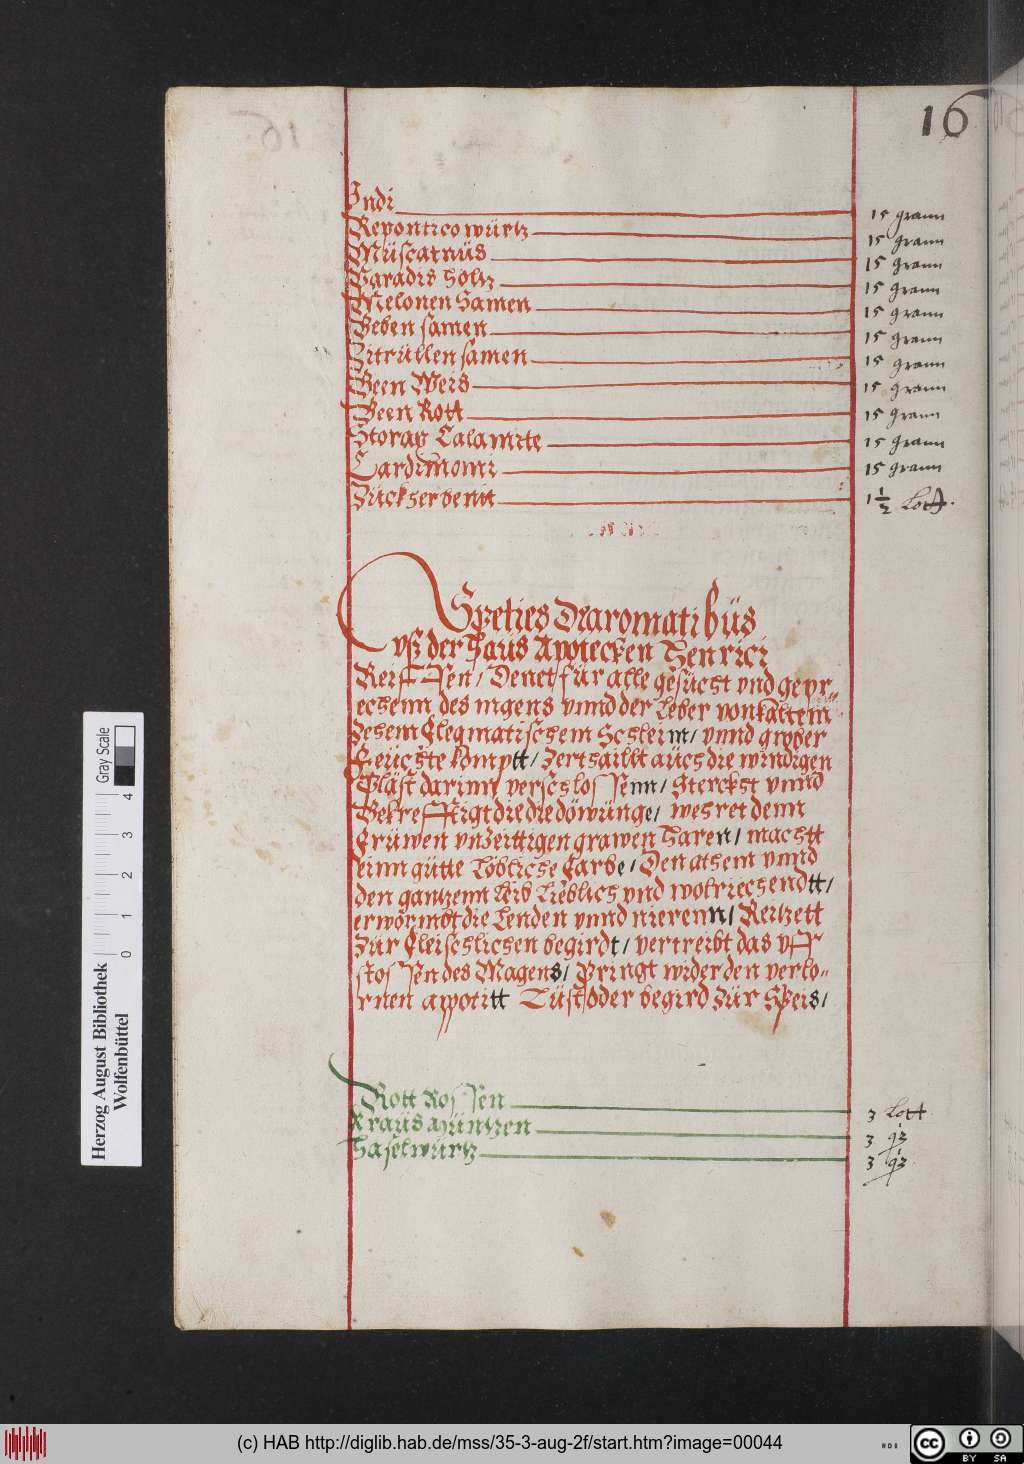 16
Indi 15 gran̄
Repontico würtz 15 gran̄
Müscatnüs 15 gran̄
Paradis holtz 15 gran̄
Melonen Samen 15 gran̄
Beben samen 15 gran̄
Zitrüllen samen 15 gran̄
Been Weis 15 gran̄
Been Rott 15 gran̄
Storax Calamite 15 gran̄
Cardimomi 15 gran̄
Zückser benitt 1½ Lott.
Speties Dearomatibüs
vß der Haüs Apotecken Henrici
Reiffsen / Denet für alle gesücht vnd gepr-
echenn des mgens vnnd der Leber von kaltem
Zehem Flegmatischem Schleim / vnnd grober
Feüchte komptt / Zertailbt aüch die windigen
Bläst darinn verschlossenn / Sterckht vnnd
Bekrefftigt die die döwünge / wehret denn
Früwen vnzeittigen grawen Haren / machtt
einn gütte Löbliche Farbe / Den athem vnnd
den gantzenn leib Lieblich vnd wolriechendtt /
erwörmbt die Lenden vnnd nierenn / Reitzett
Zür Fleischlichen begirdt / vertreibt das vff
stossen des Magens / Bringt wider den verlo-
rnen apotitt Lüst oder begird Zür Speis /
Rott Rossen 3 Lott
Kraüs Müntzen 3 qz
Haselwürtz 3 qz
Herzog August Bibliothek
Wolfenbüttel
0 1 2 3 4
Gray Scale
(c) HAB http://diglib.hab.de/mss/35-3-aug-2f/start.htm?image=00044
cc BY SA